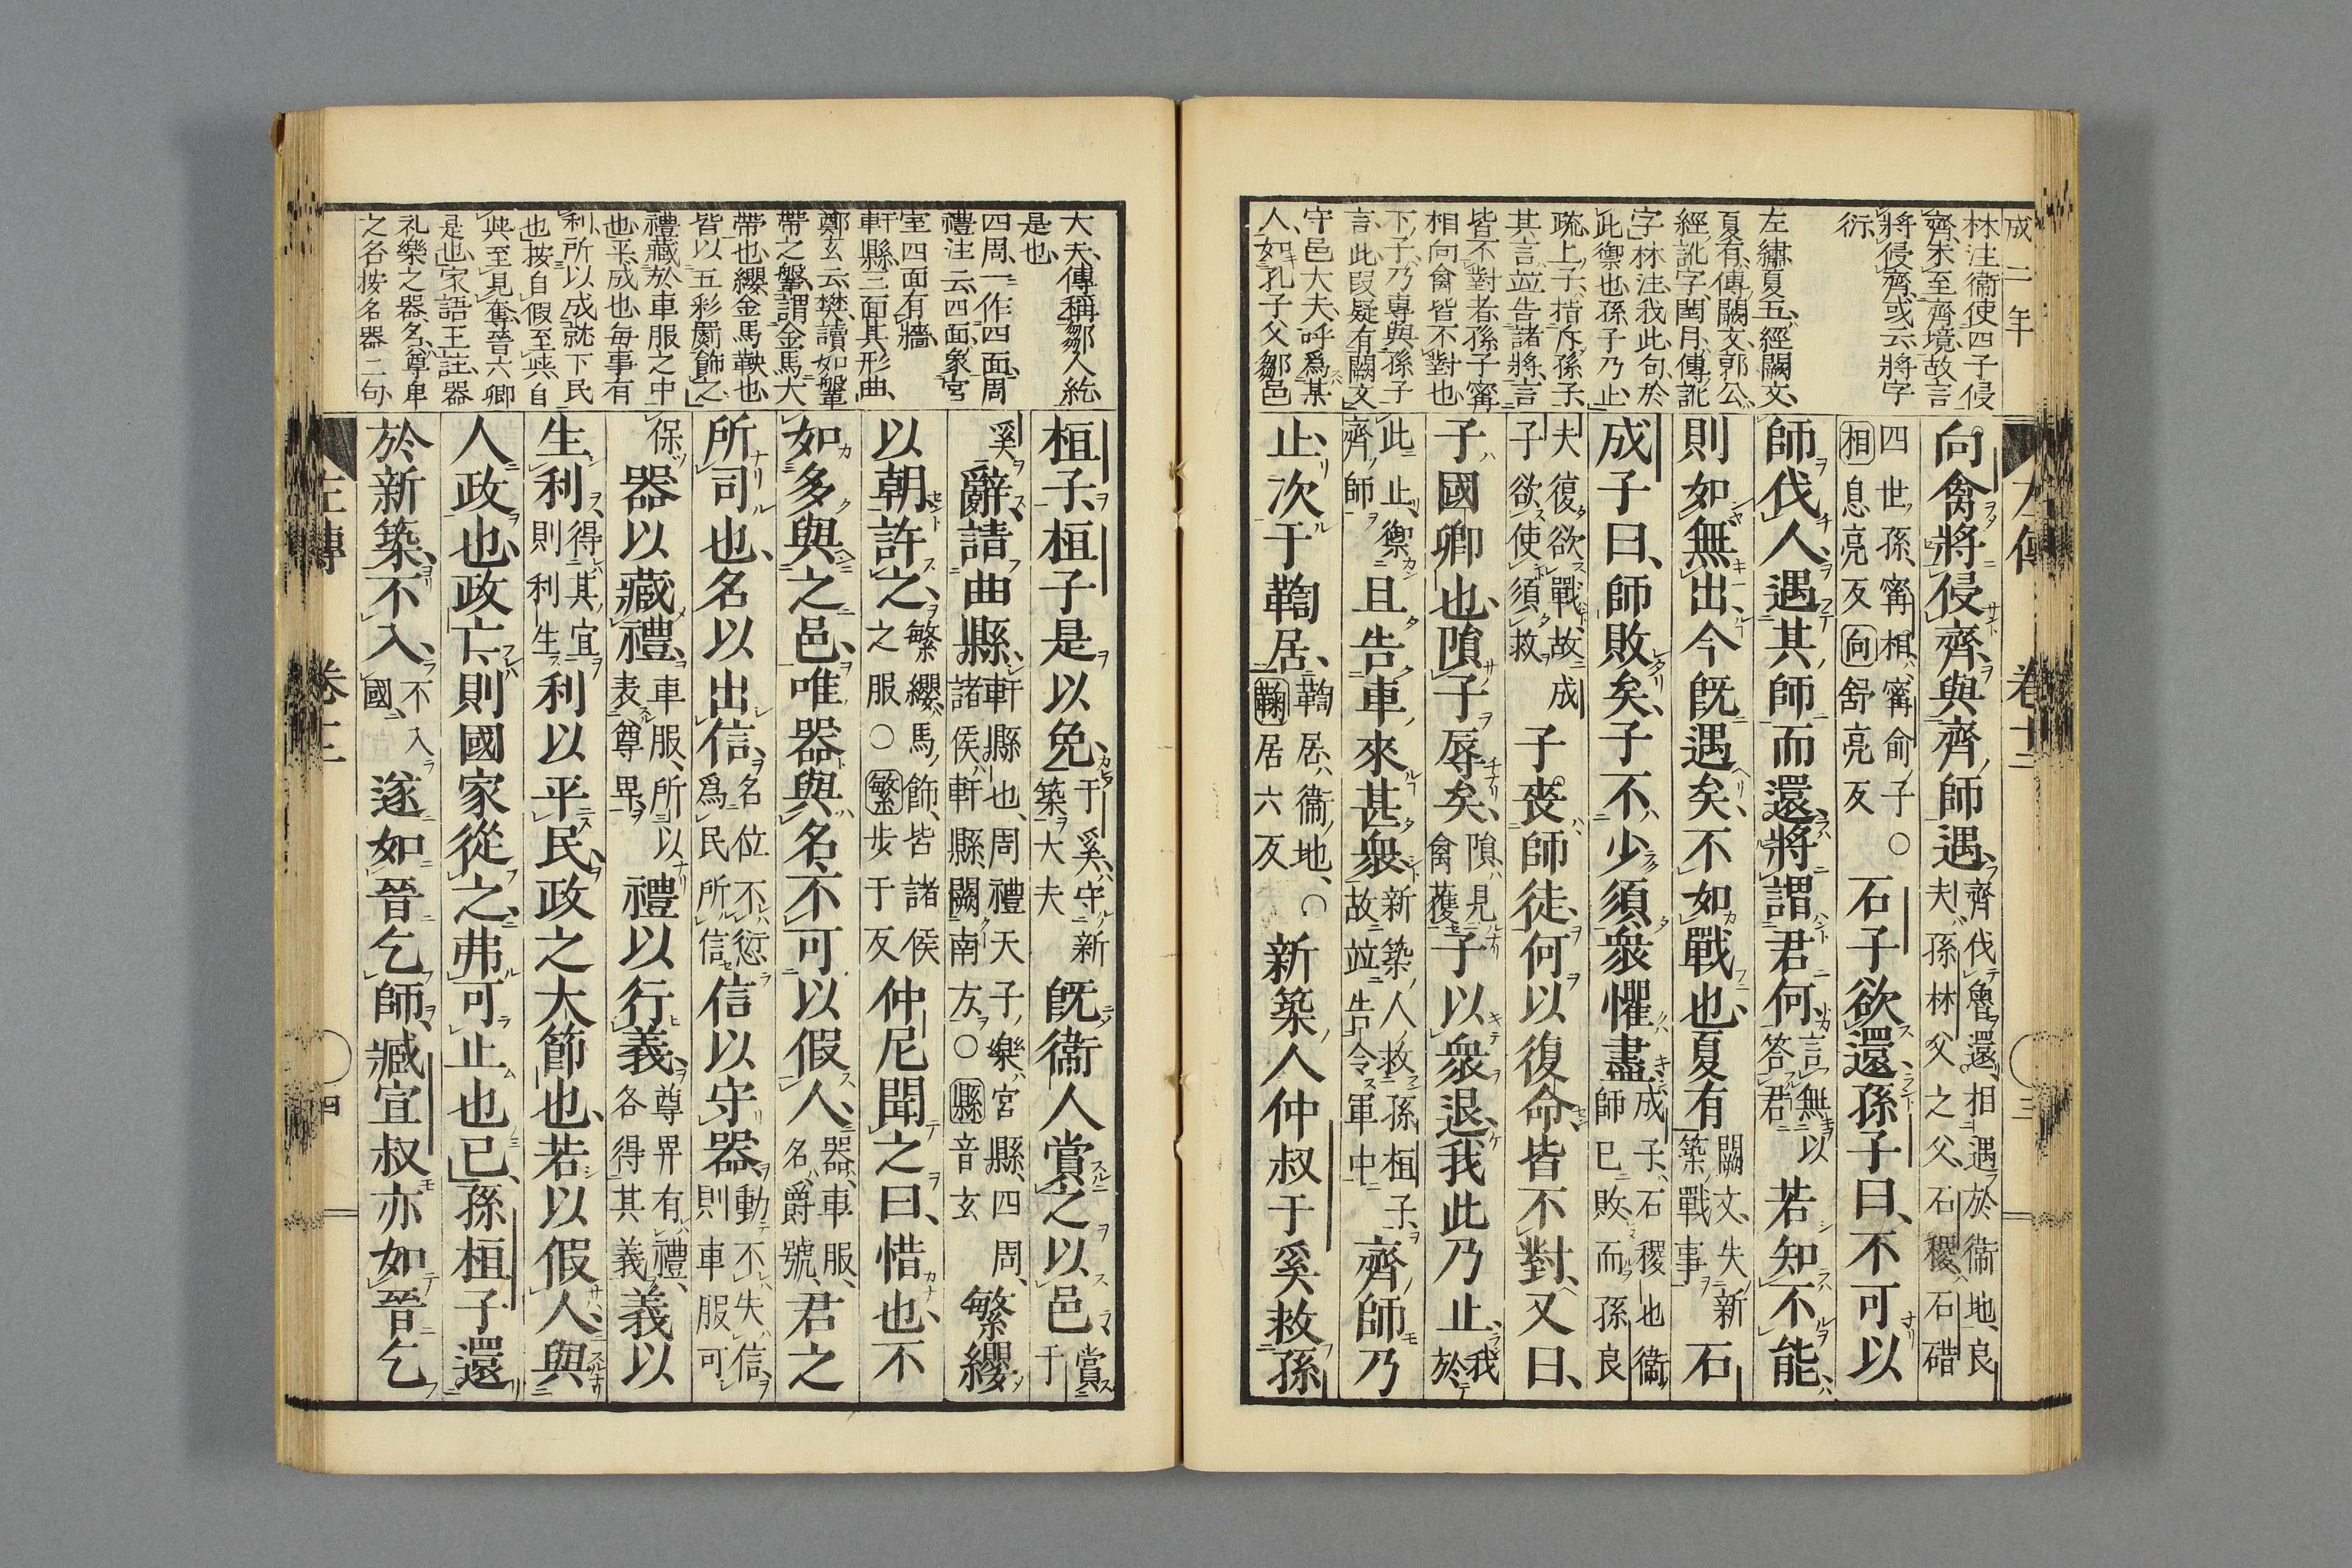 成二年
林注衞使四子侵
齊、未至齊境、故言
將侵齊、或云將字
衍
左繡夏五、經闕文、
夏有、傳闕文、郭公、
經訛字、閏月、傳訛
字、林注、我此句、於
此禦也、孫子乃止
疏、上子、指斥孫子、
其言、竝告諸將、言
皆不對者、孫子甯
相向禽皆不對也
下子、乃專與孫子
言、此叚疑有闕文
守邑大夫、呼爲某
人、如孔子父鄒邑
左傳 卷十二 三
向禽將侵齊、與齊師遇、齊伐魯還、相遇於衞地、良夫孫林父之父、石稷、石碏
四世孫、甯相、甯俞子〇相息亮反向舒亮反石子欲還、孫子曰、不可以
師伐人、遇其師而還、將謂君何言無以答君若知不能、
則如無出、今旣遇矣、不如戰也、夏有闕文、失新築戰事石
成子曰、師敗矣、子不少須、衆懼盡、成子、石稷也、衞師已敗、而孫良
夫復欲戰、故成子欲使須救子喪師徒、何以復命、皆不對、又曰、
子國卿也、隕子辱矣、隕、見禽獲子以衆退、我此乃止、我於
此止、禦齊師且告車來甚衆、新築人救孫桓子、故竝告令軍中齊師乃
止、次于鞫居、鞫居、衞地、〇鞫居六反新築人仲叔于奚救孫
大夫、傳稱鄒人紇
是也
四周、一作四面、周
禮注云、四面、象宮
室四面有牆、
軒縣、三面其形曲、
鄭玄云、樊讀如鞶
帶之鞶、謂金馬大
帶也、纓金馬鞅也、
皆以五彩罽飾之、
禮藏於車服之中
也、平、成也、毎事有
利、所以成就下民
也、按自假至與、自
與至見奪、晉六卿
是也、家語王註、器
礼樂之器、名、尊卑
之名、按名器二句
桓子、桓子是以免、于奚、守新築大夫旣衞人賞之以邑、賞于
奚辭、請曲縣、軒縣也、周禮天子樂、宮縣、四周、諸侯軒縣、闕南方〇縣音玄繁纓
以朝、許之、繁纓、馬飾、皆諸侯之服〇繁步于反仲尼聞之曰、惜也、不
如多與之邑、唯器與名、不可以假人、器、車服、名、爵號、君之
所司也、名以出信、名位不愆、爲民所信信以守器、動不失信、則車服可
保器以藏禮、車服、所以表尊畀禮以行義、尊畀有禮、各得其義義以
生利、得其宜、則利生利以平民、政之大節也、若以假人、與
人政也、政亡、則國家從之、弗可止也已、孫桓子還
於新築、不入、不入國、遂如晉乞師、臧宣叔亦如晉乞
左傳 卷十二 四